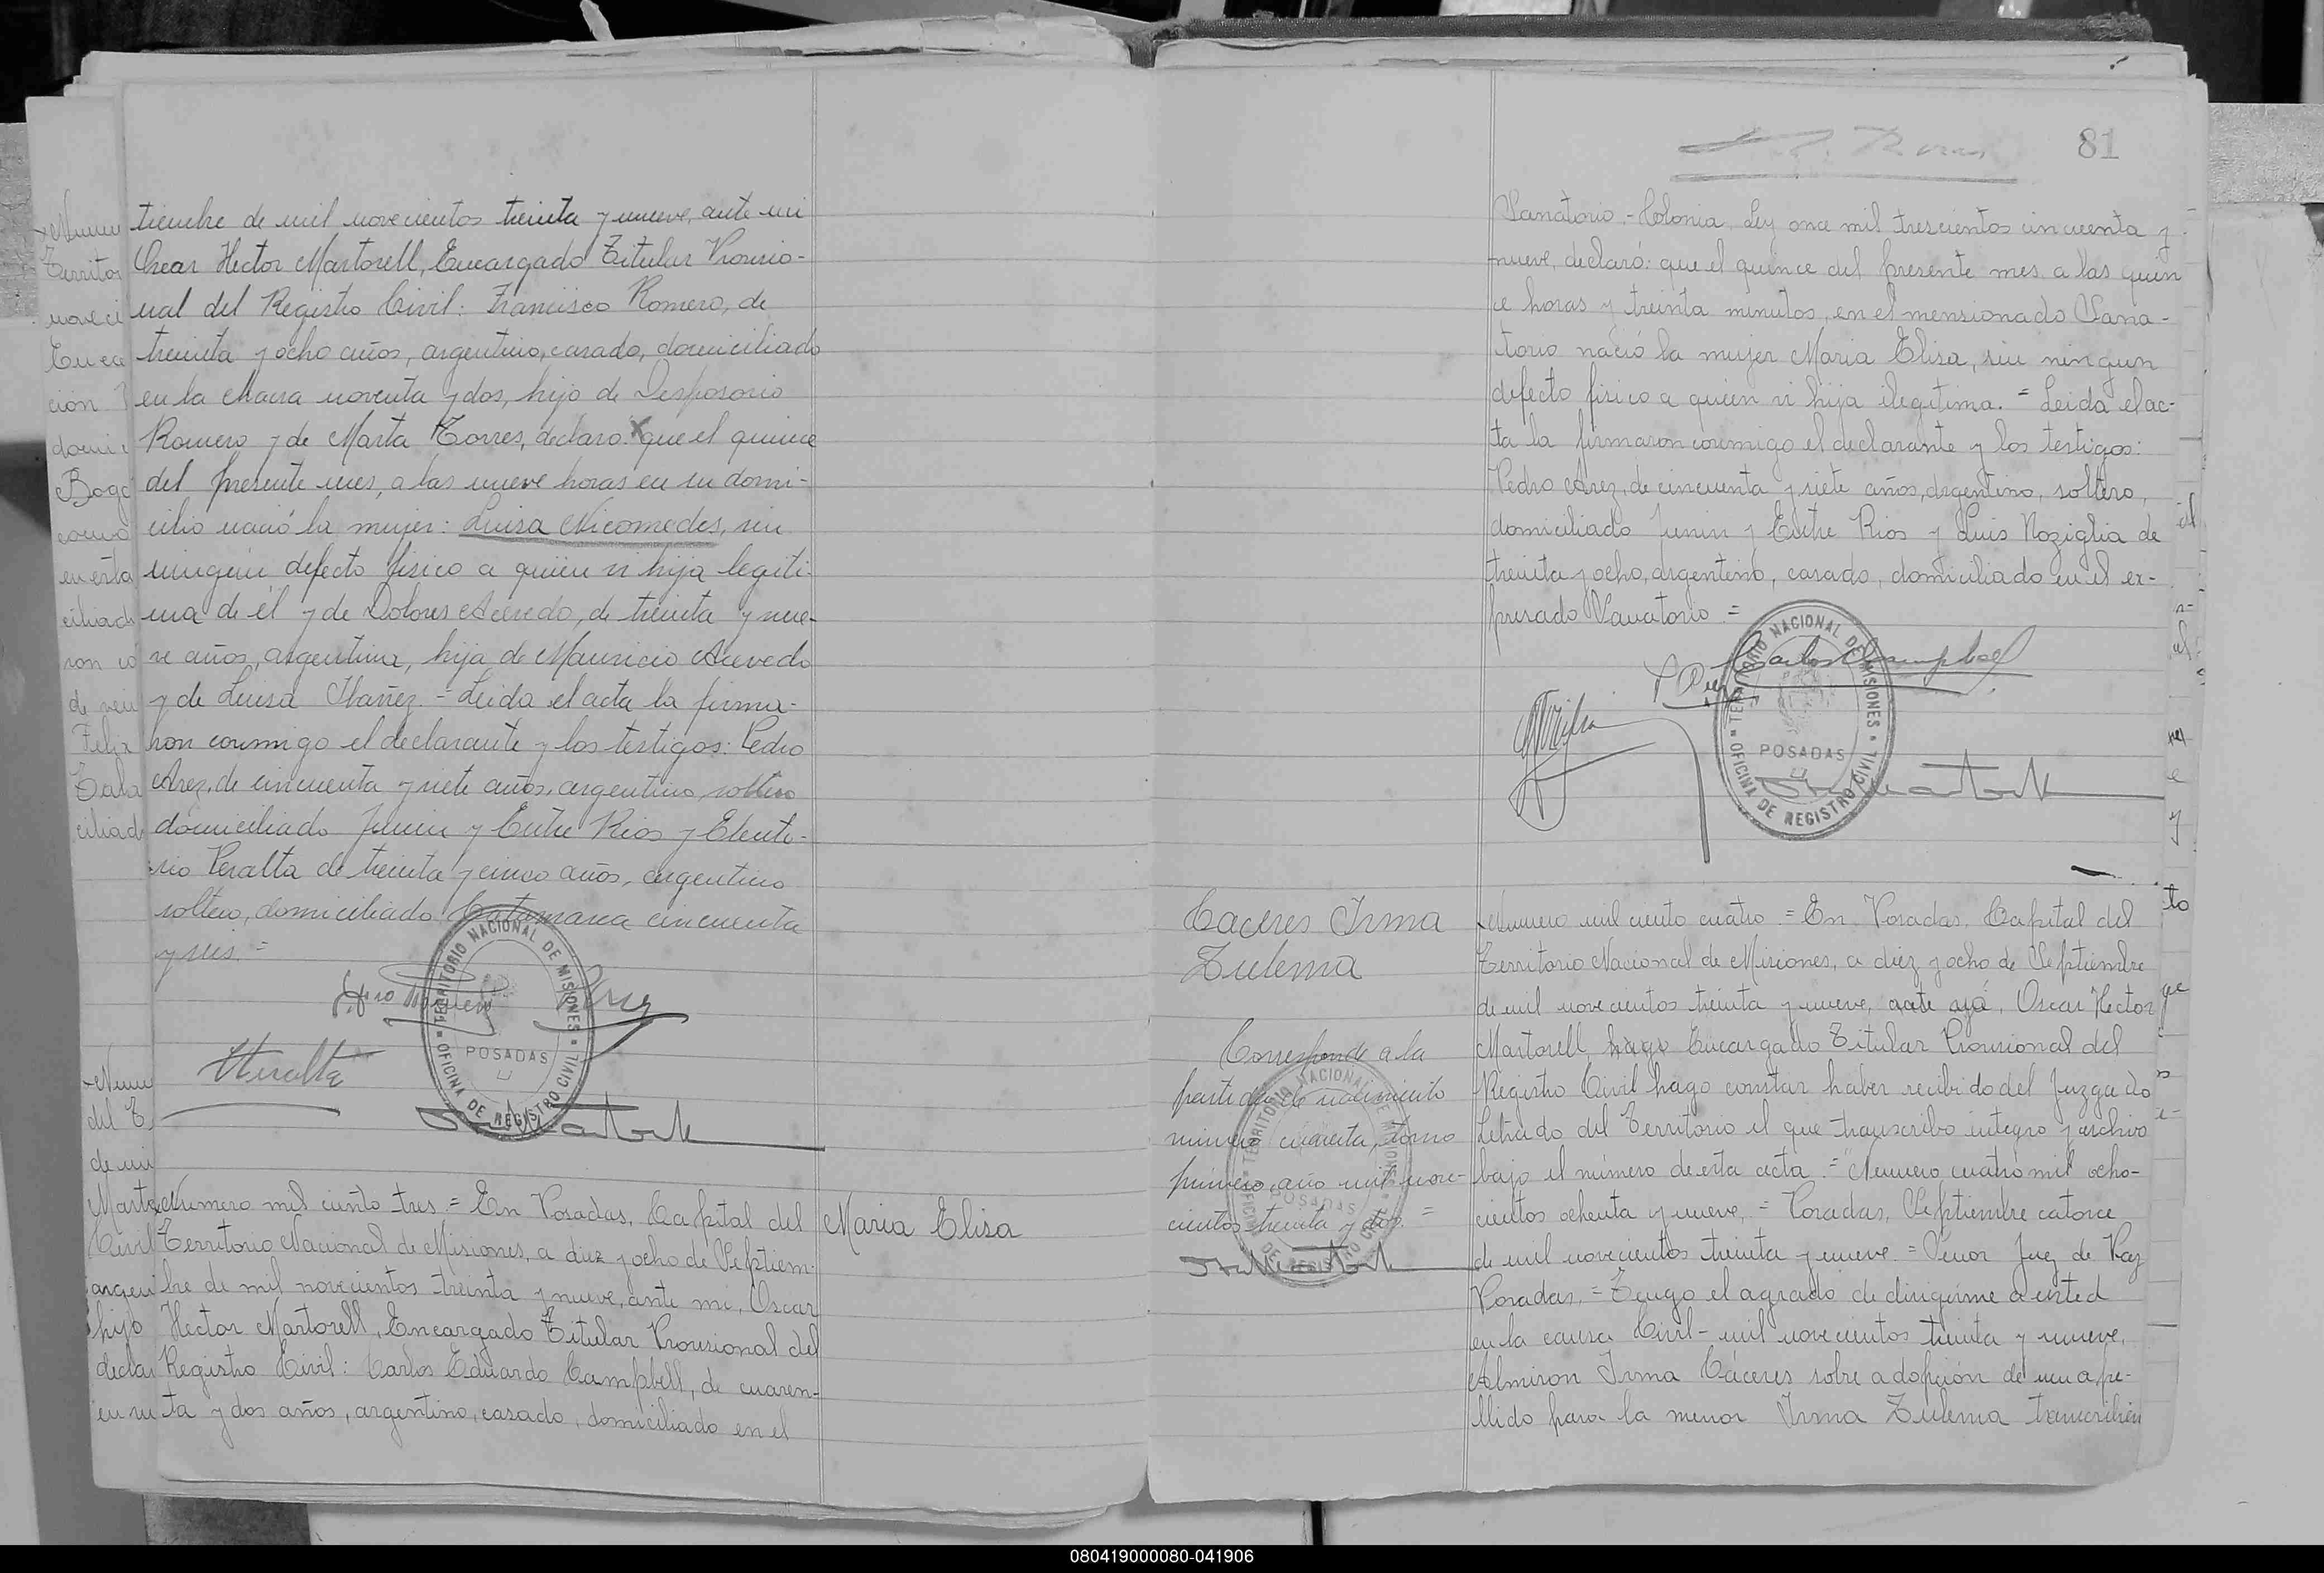 tiembre de mil novecientos treinta y nueve, ante mi
Oscar Hector Martorell, Encargado Titular Provisio-
nal del Registro Civil: Francisco Romero, de
treinta y ocho años, argentino, casado, domiciliado
en la chacra noventa y dos, hijo de Desposorio
Romero y de Marta Torres, declaro: que el quince
del presente mes, a las nueve horas en su domi-
cilio nació la mujer: Luisa Nicomedes, sin
ningún defecto fisico a quién vi hija legiti-
ma de él y de Dolores Acevedo, de treinta y nue-
ve años, argentina, hija de Mauricio Acevedo
y de Luisa Ibañez. = Leida el acta la firma-
ron conmigo el declarante y los testigos: Pedro
Arez, de cincuenta y siete años, argentino, soltero
domiciliado Junin y Entre Rios y Eleute-
rio Peralta de treinta y cinco años, argentino
soltero, domiciliado Catamarca cincuenta
y seis. =
TERRITORIO NACIONAL DE MISIONES
POSADAS
OFICINA DE REGISTRO CIVIL
Numero mil ciento tres = En Posadas, Capital del
Territorio Nacional de Misiones, a diez y ocho de Septiem-
bre de mil novecientos treinta y nueve, ante mi, Oscar
Hector Martorell, Encargado Titular Provisional del
Registro Civil: Carlos Eduardo Campbell, de cuaren-
ta y dos años, argentino, casado, domiciliado en el
Maria Elisa
81
Sanatorio - Colonia, Ley once mil trescientos cincuenta y
nueve, declaró: que el quince del presente mes a las quin
ce horas y treinta minutos, en el mensionado Sana-
torio nació la mujer Maria Elisa, sin ningun
defecto fisico a quién vi hija ilegitima. = Leida el ac-
ta la firmaron conmigo el declarante y los testigos:
Pedro Arez, de cincuenta y siete años, argentino, soltero,
domiciliado Junin y Entre Rios y Luis Noziglia de
treinta y ocho, argentino, casado, domiciliado en el ex-
presado Sanatorio =
Carlos Campbell
TERRITORIO NACIONAL DE MISIONES
POSADAS
OFICINA DE REGISTRO CIVIL
Caceres Irma
Zulema
Corresponde a la
partida de nacimiento
número cuarenta, tomo
primero, año mil nove-
cientos treinta y dos. =
TERRITORIO NACIONAL DE MISIONES
POSADAS
OFICINA DE REGISTRO CIVIL
Numero mil ciento cuatro = En Posadas, Capital del
Territorio Nacional de Misiones, a diez y ocho de Septiembre
de mil novecientos treinta y nueve, Oscar Hector
Martorell, hago Encargado Titular Provisional del
Registro Civil hago constar haber recibido del Juzgado
Letrado del Territorio el que transcribo integro y archivo
bajo el número de esta acta = "Numero cuatro mil ocho-
cientos ochenta y nueve. = Posadas, Septiembre catorce
de mil novecientos treinta y nueve = Señor Juez de Paz
Posadas. = Tengo el agrado de dirigirme a usted
en la causa Civil - mil novecientos treinta y nueve,
Almiron Irma Cáceres sobre adopción de un ape-
llido para la menor Irma Zulema transcribien
080419000080-041906